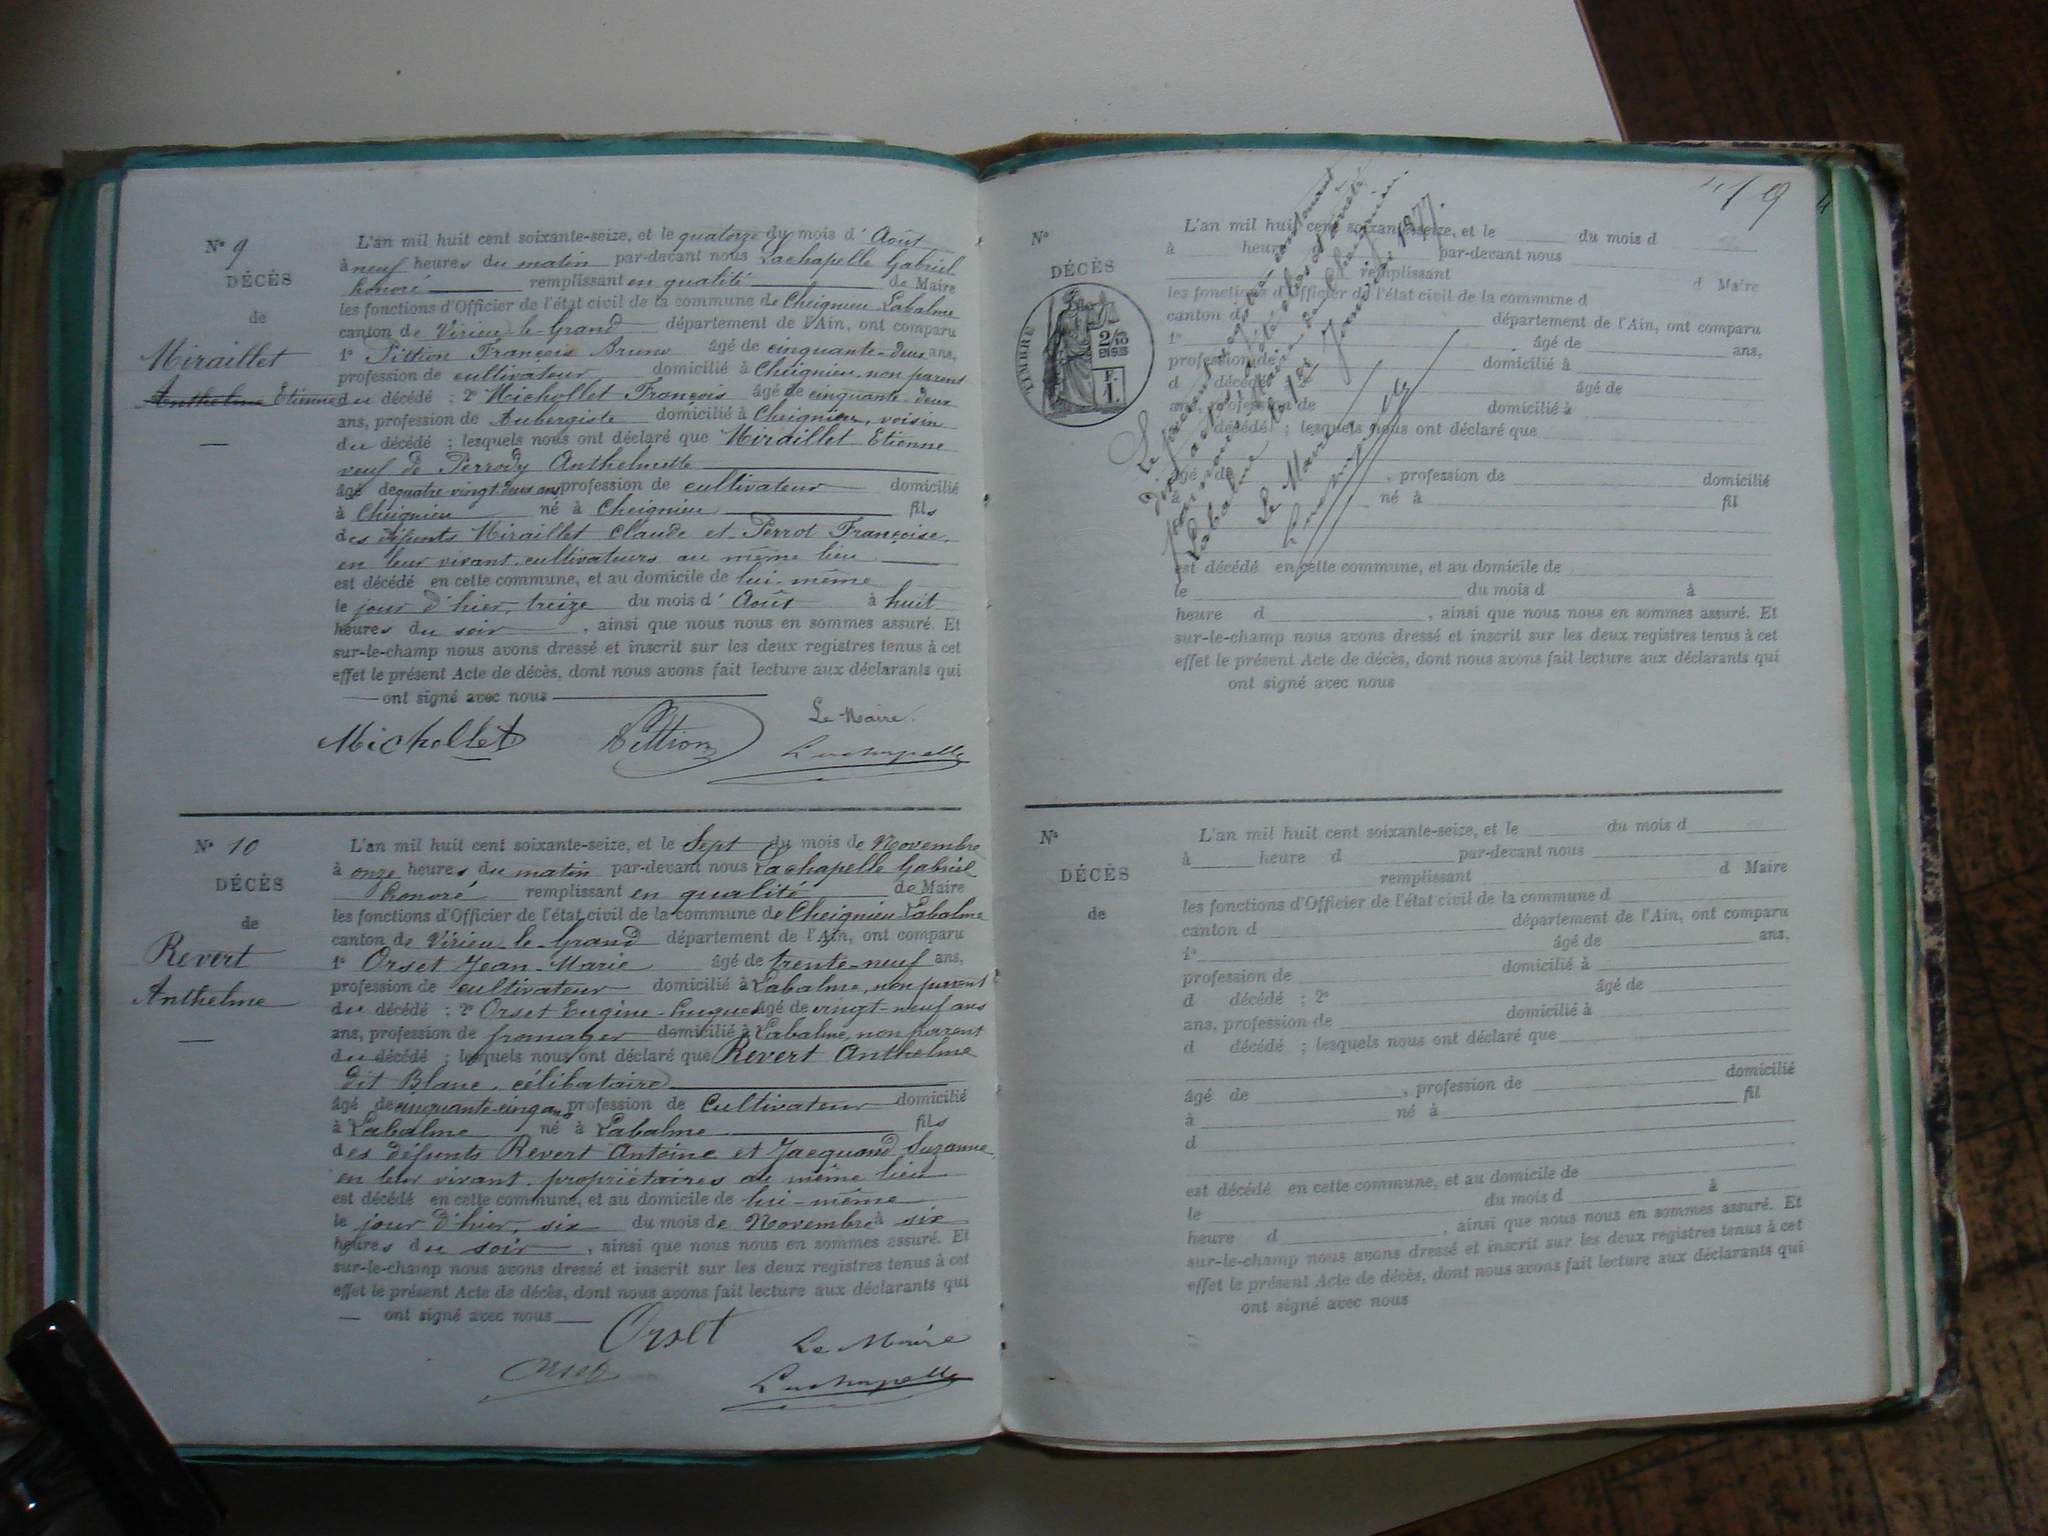 N° 9
DÉCÈS
de
Miraillet
Anthelme Etienne
L'an mil huit cent soixante-seize, et le quatorze du mois d' Août
à neuf heures du matin par-devant nous Lachapelle Gabriel
honoré remplissant en qualité de Maire
les fonctions d'Officier de l'état civil de la commune de Cheignieu-Labalme
canton de Virieu-le-Grand département de l'Ain, ont comparu
1° Pittion François Bruno âgé de cinquante-deux ans,
profession de cultivateur domicilié à Cheignieu, non parent
du décédé ; 2° Michollet François âgé de cinquante-deux
ans, profession de Aubergiste domicilié à Cheignieu, voisin
du décédé ; lesquels nous ont déclaré que Miraillet Etienne
veuf de Perrody Anthelmette
âgé de quatre-vingt deux ans profession de cultivateur domicilié
à Cheignieu né à Cheignieu fils
des défunts Miraillet Claude et Perrot Françoise,
en leur vivant cultivateurs au même lieu
est décédé en cette commune, et au domicile de lui-même
le jour d'hier, treize du mois d' Août à huit
heures du soir , ainsi que nous nous en sommes assuré. Et
sur-le-champ nous avons dressé et inscrit sur les deux registres tenus à cet
effet le présent Acte de décès, dont nous avons fait lecture aux déclarants qui
ont signé avec nous
Michollet Pittion Le Maire
Lachapelle
N° 10
DÉCÈS
de
Revert
Anthelme
L'an mil huit cent soixante-seize, et le Sept du mois de Novembre
à onze heures du matin par-devant nous Lachapelle Gabriel
honoré remplissant en qualité de Maire
les fonctions d'Officier de l'état civil de la commune de Cheignieu-Labalme
canton de Virieu-le-Grand département de l'Ain, ont comparu
1° Orset Jean-Marie âgé de trente-neuf ans,
profession de cultivateur domicilié à Labalme, non parent
du décédé : 2° Orset Eugène-hugues âgé de vingt-neuf ans
ans, profession de fromager domicilié à Labalme, non parent
du décédé ; lesquels nous ont déclaré que Revert Anthelme
dit Blanc, célibataire
âgé de cinquante-cinq ans profession de Cultivateur domicilié
à Labalme né à Labalme fils
des défunts Revert Antoine et Jacquand Suzanne,
en leur vivant propriétaires au même lieu
est décédé en cette commune, et au domicile de lui-même
le jour d'hier, six du mois de Novembre à six
heures du soir , ainsi que nous nous en sommes assuré. Et
sur-le-champ nous avons dressé et inscrit sur les deux registres tenus à cet
effet le présent Acte de décès, dont nous avons fait lecture aux déclarants qui
ont signé avec nous
Orset Le Maire
Orset Lachapelle
9
N°
DÉCÈS
TIMBRE
2/10
EN SUS
F.
1.
L'an mil huit cent soixante-seize, et le du mois d
à heure par-devant nous
remplissant d Maire
les fonctions d'Officier de l'état civil de la commune d
canton d département de l'Ain, ont comparu
1° âgé de ans,
profession de domicilié à
d décédé âgé de
ans, profession de domicilié à
décédé ; lesquels nous ont déclaré que
âgé de , profession de domicilié
à né à fil
est décédé en cette commune, et au domicile de
le du mois d à
heure d , ainsi que nous nous en sommes assuré. Et
sur-le-champ nous avons dressé et inscrit sur les deux registres tenus à cet
effet le présent Acte de décès, dont nous avons fait lecture aux déclarants qui
ont signé avec nous
Le présent registre contenant
dix actes a été clos et arrêté
par nous Maire de Cheignieu-
Labalme le 1er Janvier 1877.
Le Maire
Lachapelle
N°
DÉCÈS
de
L'an mil huit cent soixante-seize, et le du mois d
à heure d par-devant nous
remplissant d Maire
les fonctions d'Officier de l'état civil de la commune d
canton d département de l'Ain, ont comparu
1° âgé de ans,
profession de domicilié à
d décédé ; 2° âgé de
ans, profession de domicilié à
d décédé ; lesquels nous ont déclaré que
âgé de , profession de domicilié
à né à fil
d
est décédé en cette commune, et au domicile de
le du mois d à
heure d , ainsi que nous nous en sommes assuré. Et
sur-le-champ nous avons dressé et inscrit sur les deux registres tenus à cet
effet le présent Acte de décès, dont nous avons fait lecture aux déclarants qui
ont signé avec nous